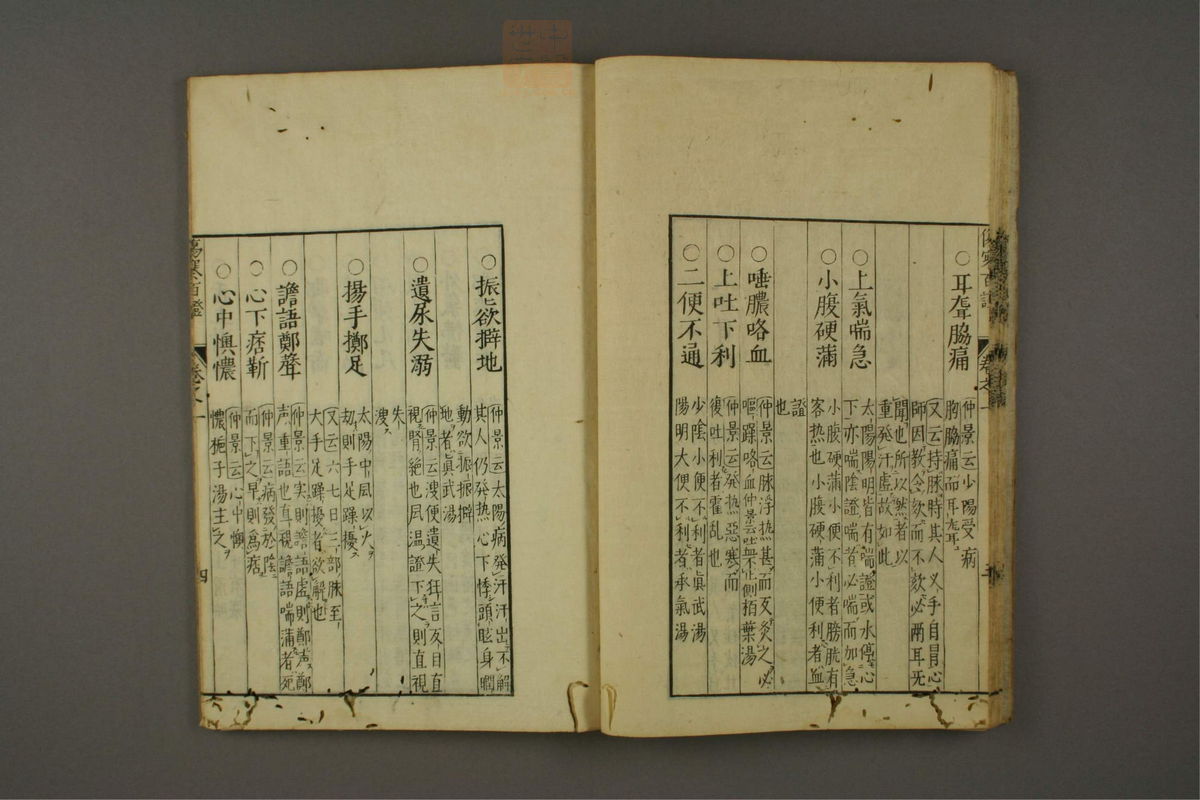 ○耳聾脇痛
仲景云少陽受病
胸脇痛而耳聾
又云持脉時其人叉手自冒心
師因教令欬而不欬必兩耳无
聞也所以然者以
重発汗虚故如此
○上氣喘急
太陽陽明皆有喘證或水停心
下亦喘陰證喘者必喘而加急
○小腹硬満
小腹硬蒲小便不利者膀胱有
客热也小腹硬蒲小便利者血
證
也
○唾膿咯血
仲景云脉浮热甚而反灸之必
嘔躁咯血仲景云吐血不止側栢葉湯
○上吐下利
仲景云発热惡寒而
復吐利者霍乱也
○二便不通
少陰小便不利者眞武湯
陽明大便不利者承氣湯
○振〻欲擗地
仲景云太陽病発汗汗出不解
其人仍発热心下悸頭眩身瞤
動欲振振擗
地者眞武湯
○遺尿失溺
仲景云溲便遺失狂言反目直
視腎絶也風温證下之則直視
失
溲
○揚手擲足
太陽中風以火
劫則手足躁擾
又云六七日三部脉至
大手足躁擾者欲解也
○譫語鄭聲
仲景云実則譫語虚則鄭声鄭
声重語也直視譫語喘蒲者死
○心下痞
仲景云病發於陰
而下之早則為痞
○心中懊憹
仲景云心中懊
憹梔子湯主之
傷寒百證
卷之一
四